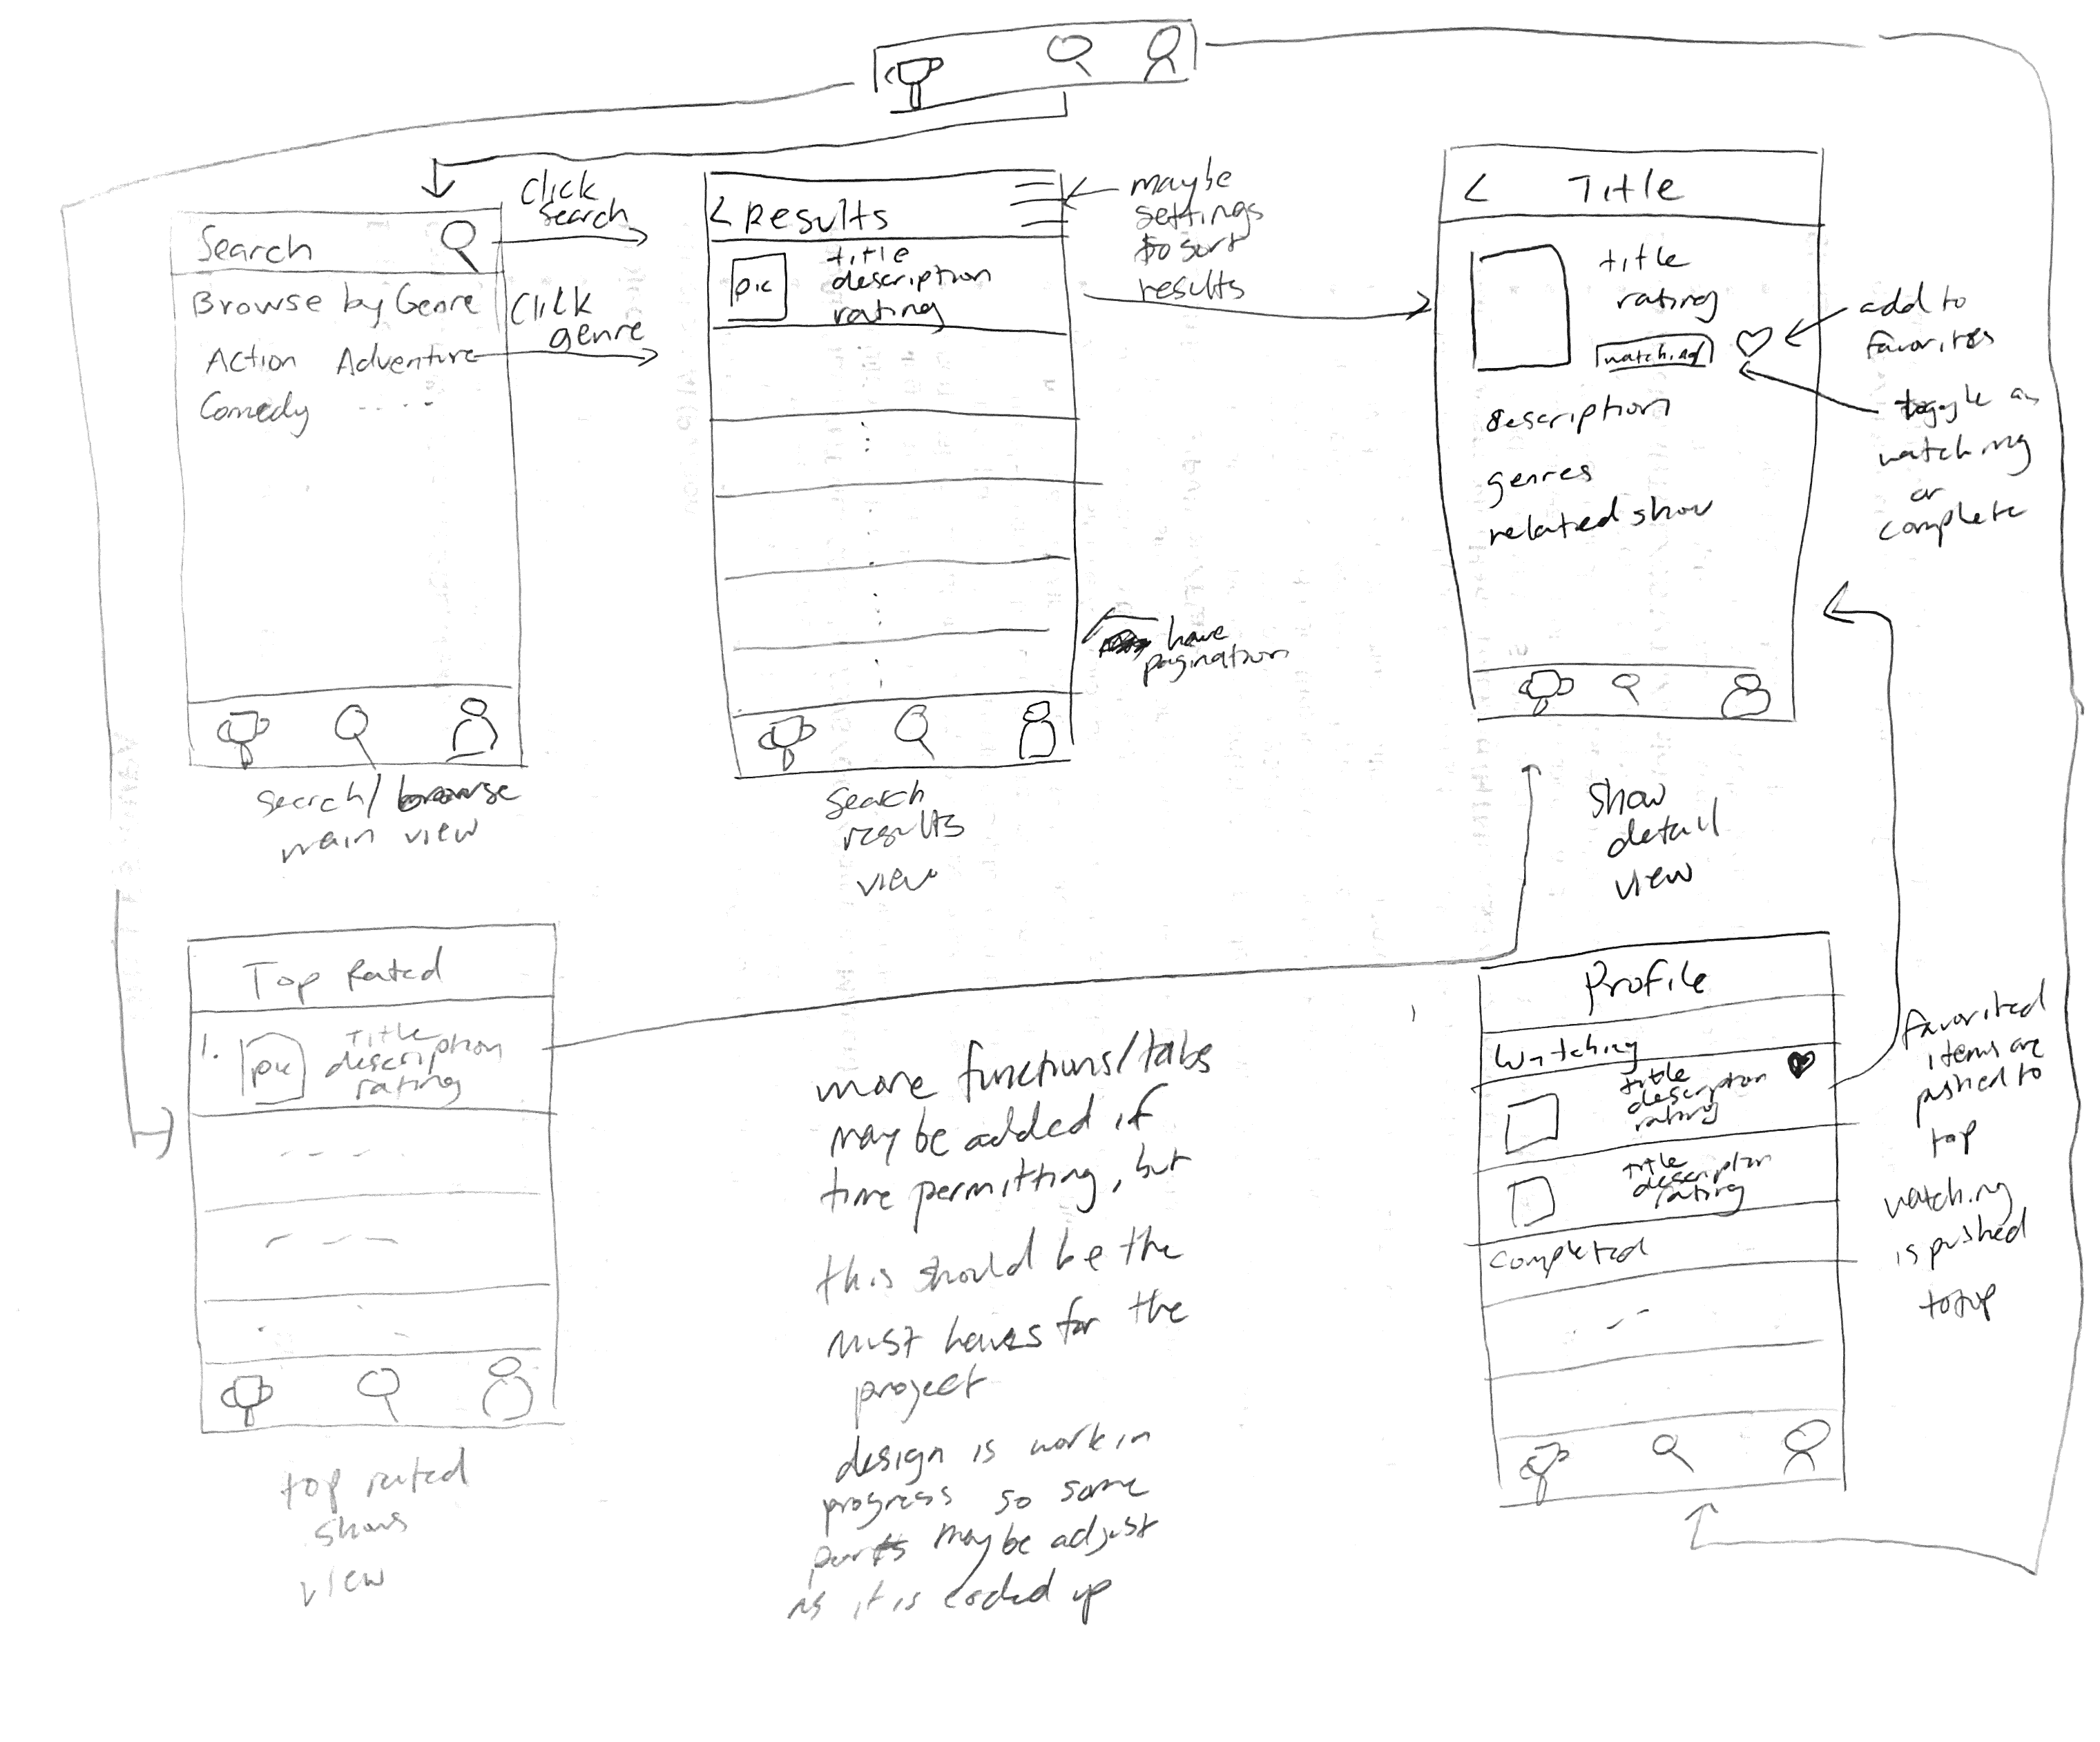 Search
Browse by Genre
Action Adventure
Comedy
Click
search
Click
genre
search/browse
main view
< Results
title
description
rating
pic
maybe
settings
to sort
results
have
pagination
search
results
view
< Title
title
rating
watching
description
genres
related show
add to
favorites
toggle as
watching
or
complete
show
detail
view
Top Rated
1. pic
Title
description
rating
top rated
shows
view
more functions/tabs
may be added if
time permitting, but
this should be the
must haves for the
project
design is work in
progress so some
parts may be adjust
as it is coded up
Profile
Watching
title
description
rating
title
description
rating
Completed
favorited
items are
pushed to
top
watching
is pushed
to top